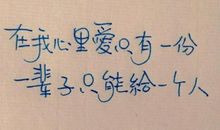 在我心里爱只有一份
一辈子只能给一个人